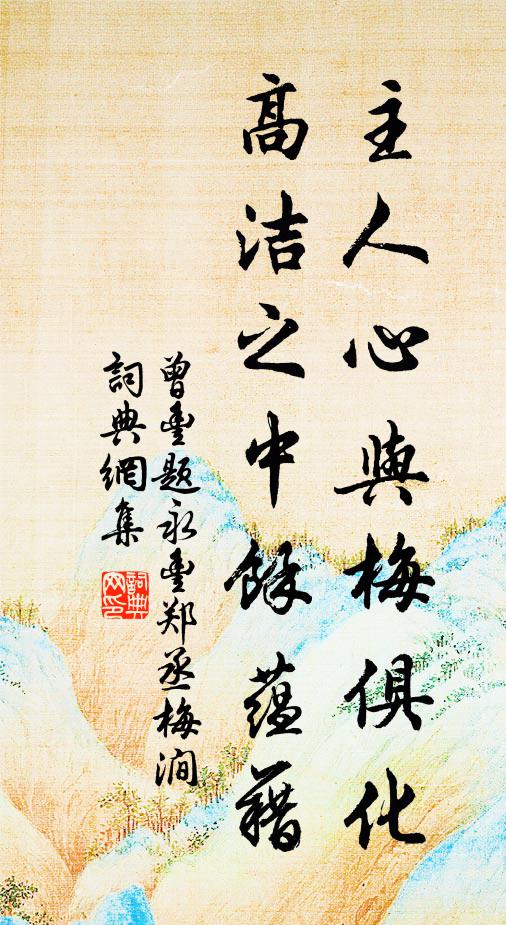 主人心與梅俱化
高洁之中餘蕴藉
曾豊题永豊郑丞梅澗
詞典網集
詞典網印